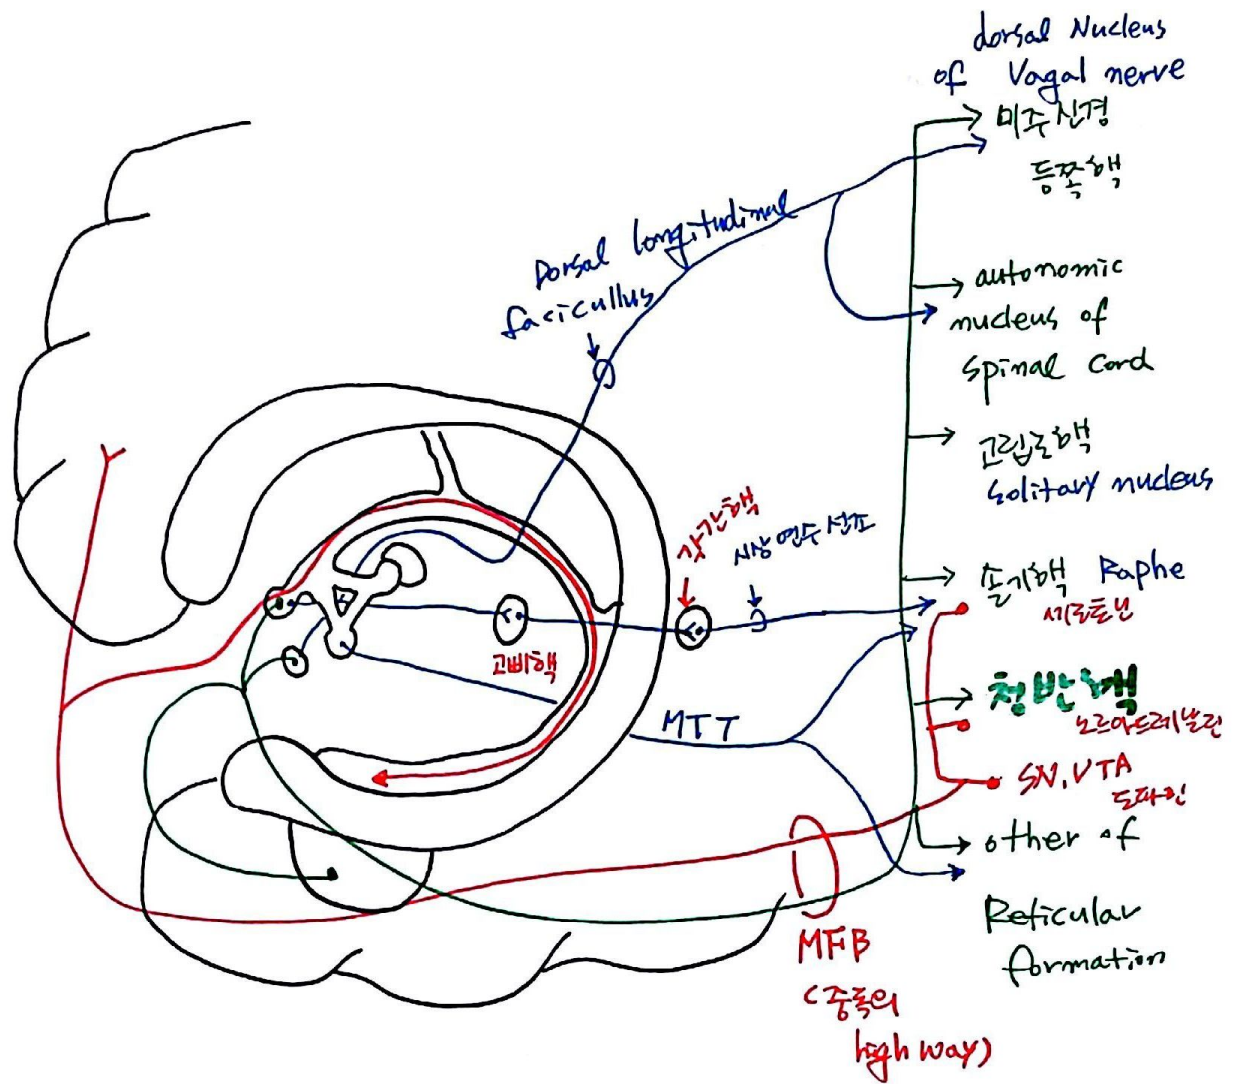 dorsal Nucleus
of Vagal nerve
미주신경
등쪽핵
Dorsal longitudinal
facicullus
autonomic
nucleus of
spinal cord
고립로핵
solitary nucleus
각간핵
시상연수선조
솔기핵 Raphe
세로토닌
고삐핵
청반핵
노르아드레날린
MTT
SN, VTA
도파민
other of
Reticular
formation
MFB
(중독의
high way)